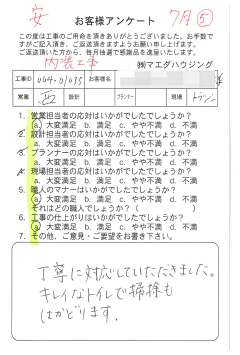 安
お客様アンケート
7月⑤
この度は工事のご用命を頂きありがとうございました。お手数で
すがご記入頂き、ご返送頂きますようお願い申し上げます。
ご返送いただいた方に、毎月抽選で感謝品を進呈いたします。
内装工事
㈱マエダハウジング
工事ID
お客様名
営業
西
設計
プランナー
現場
1. 営業担当者の応対はいかがでしたでしょうか?
(a) 大変満足 b. 満足 c. やや不満 d. 不満
2. 設計担当者の応対はいかがでしたでしょうか?
a. 大変満足 b. 満足 c. やや不満 d. 不満
3. プランナーの応対はいかがでしたでしょうか?
a. 大変満足 b. 満足 c. やや不満 d. 不満
4. 現場担当者の応対はいかがでしたでしょうか?
a. 大変満足 b. 満足 c. やや不満 d. 不満
5. 職人のマナーはいかがでしたでしょうか?
(a) 大変満足 b. 満足 c. やや不満 d. 不満
それはどの職人でしょうか?( )
6. 工事の仕上がりはいかがでしたでしょうか?
(a) 大変満足 b. 満足 c. やや不満 d. 不満
7. その他、ご意見・ご要望をお書き下さい。
丁寧に対応していただきました。
キレイなトイレで掃除も
はかどります。